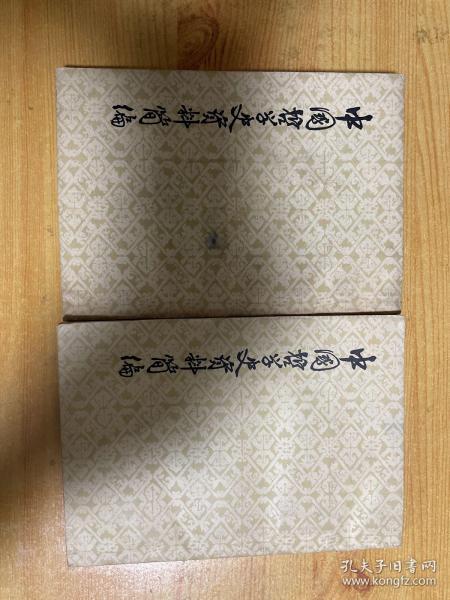 中國哲学史資料簡編
中國哲学史資料簡編
孔夫子旧书网
www.kongfz.com